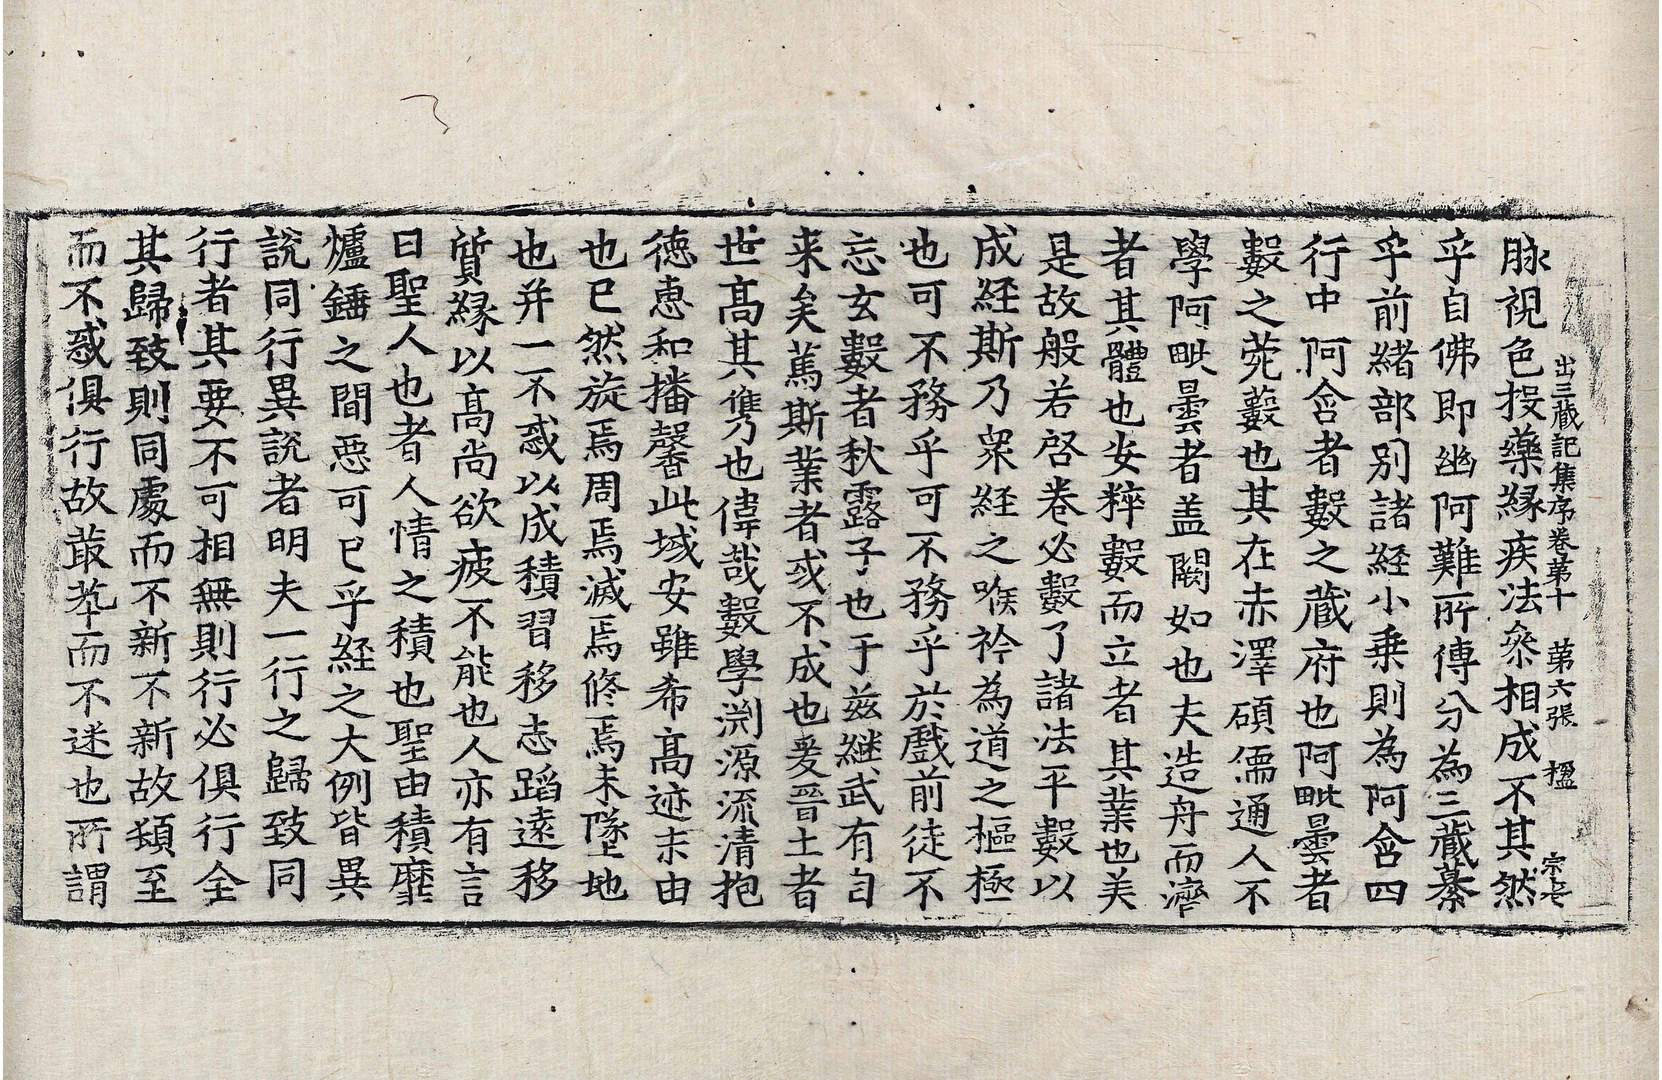 出三蔵記集序卷苐十　苐六張　楹　宗七
脉視色投藥緣疾法叅相成不其然
乎自佛即幽阿難所傳分為三蔵纂
乎前緒部別諸経小乗則為阿含四
行中阿含者數之蔵府也阿毗曇者
數之菀藪也其在赤澤碩儒通人不
學阿毗曇者盖闕如也夫造舟而濟
者其體也安粹數而立者其業也美
是故般若啓卷必數了諸法平數以
成経斯乃衆経之喉衿為道之樞極
也可不務乎可不務乎於戲前徒不
忘玄數者秋露子也于兹継武有自
来矣篤斯業者或不成也爰晉土者
世髙其雋也偉哉數學渕源流清抱
德惠和播馨此域安雖希髙迹未由
也已然旋焉周焉滅焉修焉未墜地
也并一不惑以成積習移志蹈遠移
質緣以髙尚欲疲不能也人亦有言
曰聖人也者人情之積也聖由積靡
爐錘之間惡可已乎経之大例皆異
說同行異說者明夫一行之歸致同
行者其要不可相無則行必俱行全
其歸致則同處而不新不新故頺至
而不惑俱行故叢萃而不迷也所謂